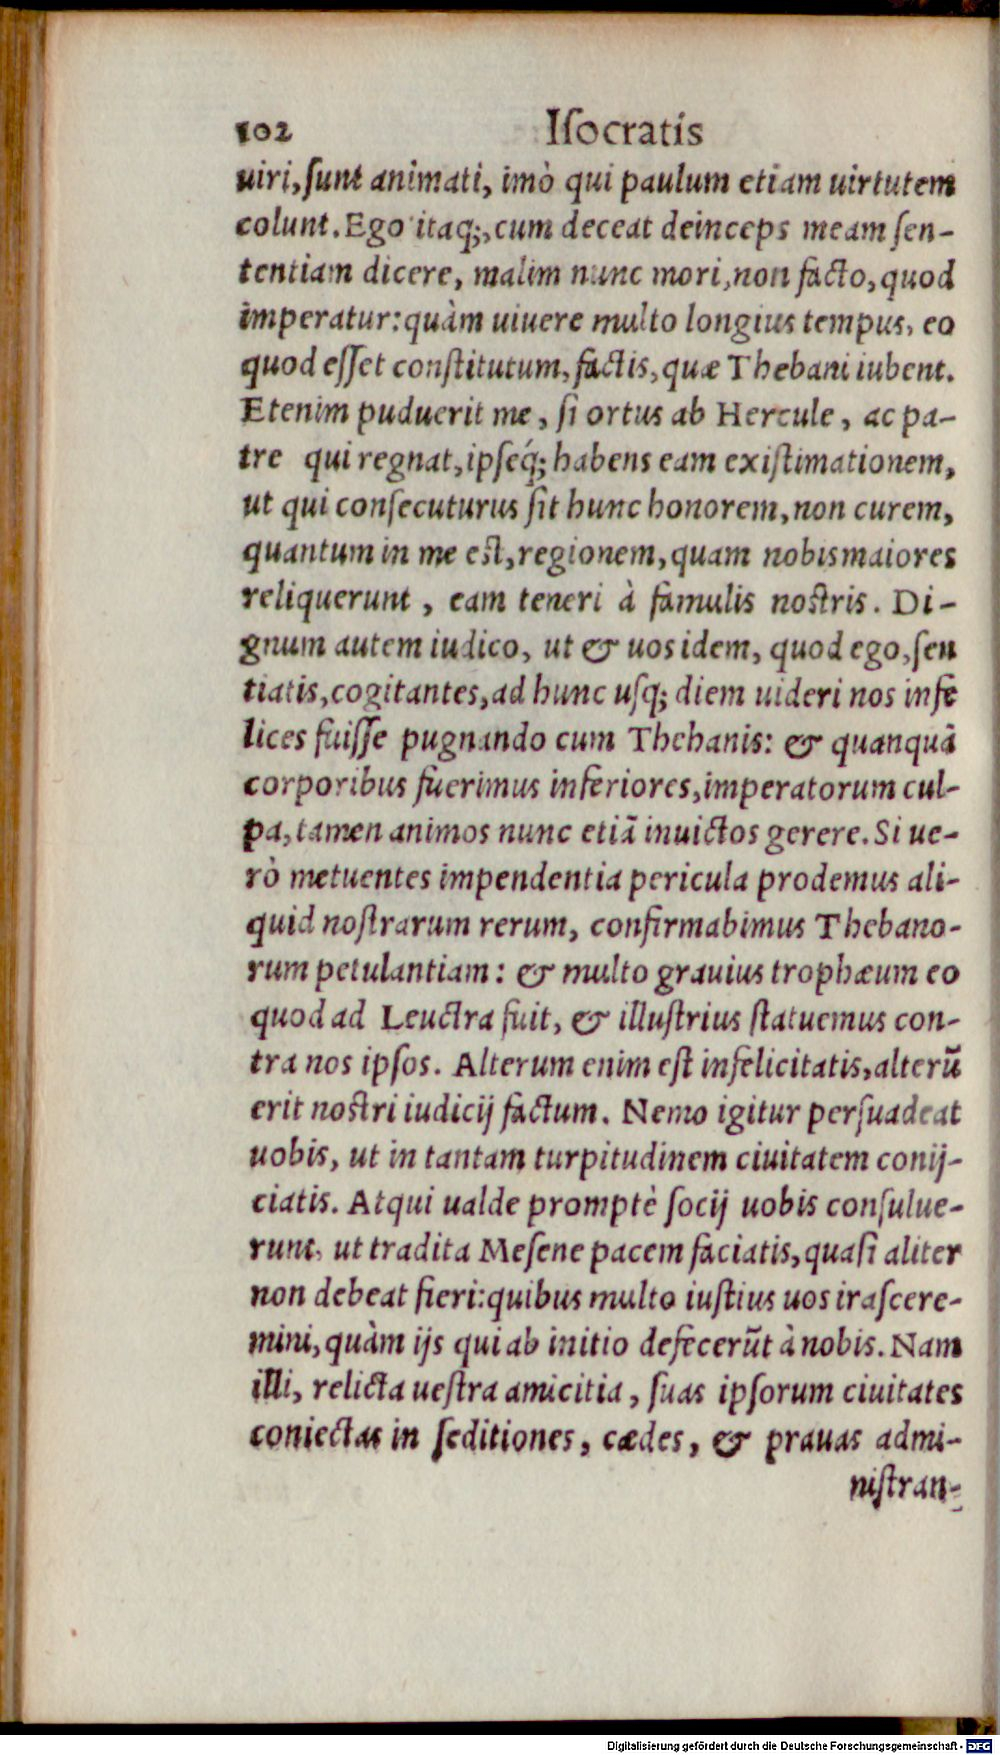 102 Iſocratis
uiri, ſunt animati, imò qui paulum etiam uirtutem
colunt. Ego itaq;, cum deceat deinceps meam ſen-
tentiam dicere, malim nunc mori, non facto, quod
imperatur: quàm uiuere multo longius tempus, eo
quod eſſet conſtitutum, factis, quæ Thebani iubent.
Etenim puduerit me, ſi ortus ab Hercule, ac pa-
tre qui regnat, ipſeq́; habens eam exiſtimationem,
ut qui conſecuturus ſit hunc honorem, non curem,
quantum in me eſt, regionem, quam nobis maiores
reliquerunt, eam teneri à famulis noſtris. Di-
gnum autem iudico, ut & uos idem, quod ego, ſen
tiatis, cogitantes, ad hunc uſq; diem uideri nos infe
lices fuiſſe pugnando cum Thebanis: & quanquã
corporibus fuerimus inferiores, imperatorum cul-
pa, tamen animos nunc etiã inuictos gerere. Si ue-
rò metuentes impendentia pericula prodemus ali-
quid noſtrarum rerum, confirmabimus Thebano-
rum petulantiam: & multo grauius trophæum eo
quod ad Leuctra fuit, & illuſtrius ſtatuemus con-
tra nos ipſos. Alterum enim eſt infelicitatis, alterũ
erit noſtri iudicij factum. Nemo igitur perſuadeat
uobis, ut in tantam turpitudinem ciuitatem conij-
ciatis. Atqui ualde promptè ſocij uobis conſulue-
runt, ut tradita Meſene pacem faciatis, quaſi aliter
non debeat fieri: quibus multo iuſtius uos iraſcere-
mini, quàm ijs qui ab initio defecerũt à nobis. Nam
illi, relicta ueſtra amicitia, ſuas ipſorum ciuitates
coniectas in ſeditiones, cædes, & prauas admi-
niſtran-
Digitalisierung gefördert durch die Deutsche Forschungsgemeinschaft - DFG